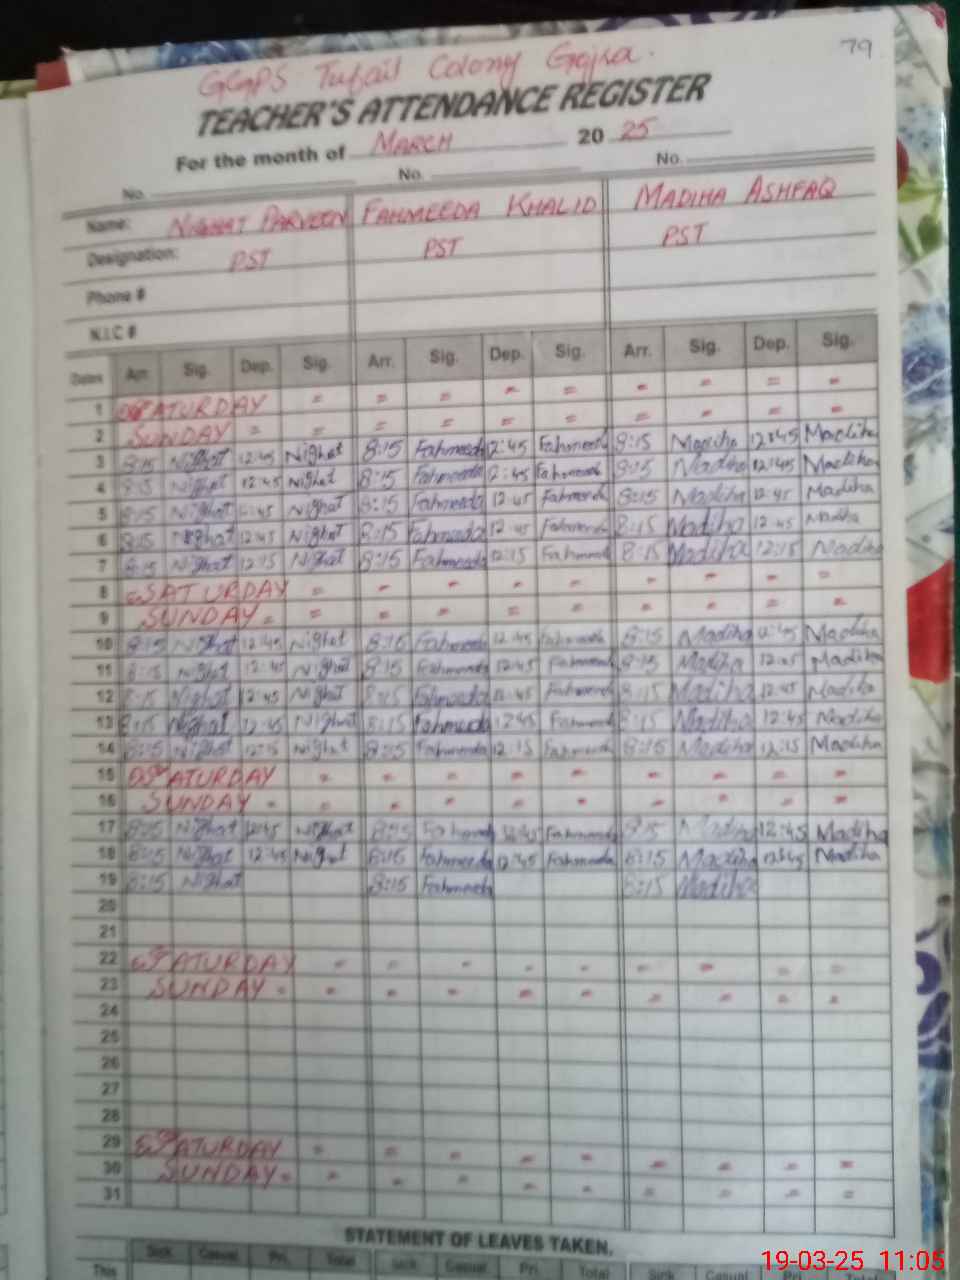 79
GGPS Tufail Colony Gojra.
TEACHER'S ATTENDANCE REGISTER
For the month of MARCH 20 25
No. No. No.
Name: NIGHAT PARVEEN FAHMEEDA KHALID MADIHA ASHFAQ
Designation: PST PST PST
Phone #
N.I.C #
Dates Arr. Sig. Dep. Sig. Arr. Sig. Dep. Sig. Arr. Sig. Dep. Sig.
1 SATURDAY = = = = = = = = =
2 SUNDAY = = = = = = = = = =
3 8:15 Nighat 12:45 Nighat 8:15 Fahmeeda 12:45 Fahmeeda 8:15 Madiha 12:45 Madiha
4 8:15 Nighat 12:45 Nighat 8:15 Fahmeeda 12:45 Fahmeeda 8:15 Madiha 12:45 Madiha
5 8:15 Nighat 12:45 Nighat 8:15 Fahmeeda 12:45 Fahmeeda 8:15 Madiha 12:45 Madiha
6 8:15 Nighat 12:45 Nighat 8:15 Fahmeeda 12:45 Fahmeeda 8:15 Madiha 12:45 Madiha
7 8:15 Nighat 12:15 Nighat 8:15 Fahmeeda 12:15 Fahmeeda 8:15 Madiha 12:15 Madiha
8 SATURDAY = = = = = = = = =
9 SUNDAY = = = = = = = = = =
10 8:15 Nighat 12:45 Nighat 8:15 Fahmeeda 12:45 Fahmeeda 8:15 Madiha 12:45 Madiha
11 8:15 Nighat 12:45 Nighat 8:15 Fahmeeda 12:45 Fahmeeda 8:15 Madiha 12:45 Madiha
12 8:15 Nighat 12:45 Nighat 8:15 Fahmeeda 12:45 Fahmeeda 8:15 Madiha 12:45 Madiha
13 8:15 Nighat 12:45 Nighat 8:15 Fahmeeda 12:45 Fahmeeda 8:15 Madiha 12:45 Madiha
14 8:15 Nighat 12:15 Nighat 8:15 Fahmeeda 12:15 Fahmeeda 8:15 Madiha 12:15 Madiha
15 SATURDAY = = = = = = = = =
16 SUNDAY = = = = = = = = = =
17 8:15 Nighat 12:45 Nighat 8:15 Fahmeeda 12:45 Fahmeeda 8:15 Madiha 12:45 Madiha
18 8:15 Nighat 12:45 Nighat 8:15 Fahmeeda 12:45 Fahmeeda 8:15 Madiha 12:45 Madiha
19 8:15 Nighat 8:15 Fahmeeda 8:15 Madiha
20
21
22 SATURDAY = = = = = = = = =
23 SUNDAY = = = = = = = = = =
24
25
26
27
28
29 SATURDAY = = = = = = = = =
30 SUNDAY = = = = = = = = = =
31
STATEMENT OF LEAVES TAKEN.
Sick Casual Pri. Total Sick Casual Pri. Total Sick Casual Pri.
This
19-03-25 11:05